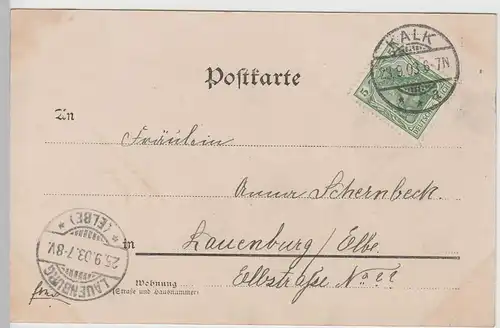 Postkarte
KALK
23.9.03.6-7N
5
An
Fräulein
Anna Schernbeck.
in Lauenburg/Elbe.
Elbstraße No 22
Wohnung
(Straße und Hausnummer)
LAUENBURG
25.9.03.7-8V.
* (ELBE) *